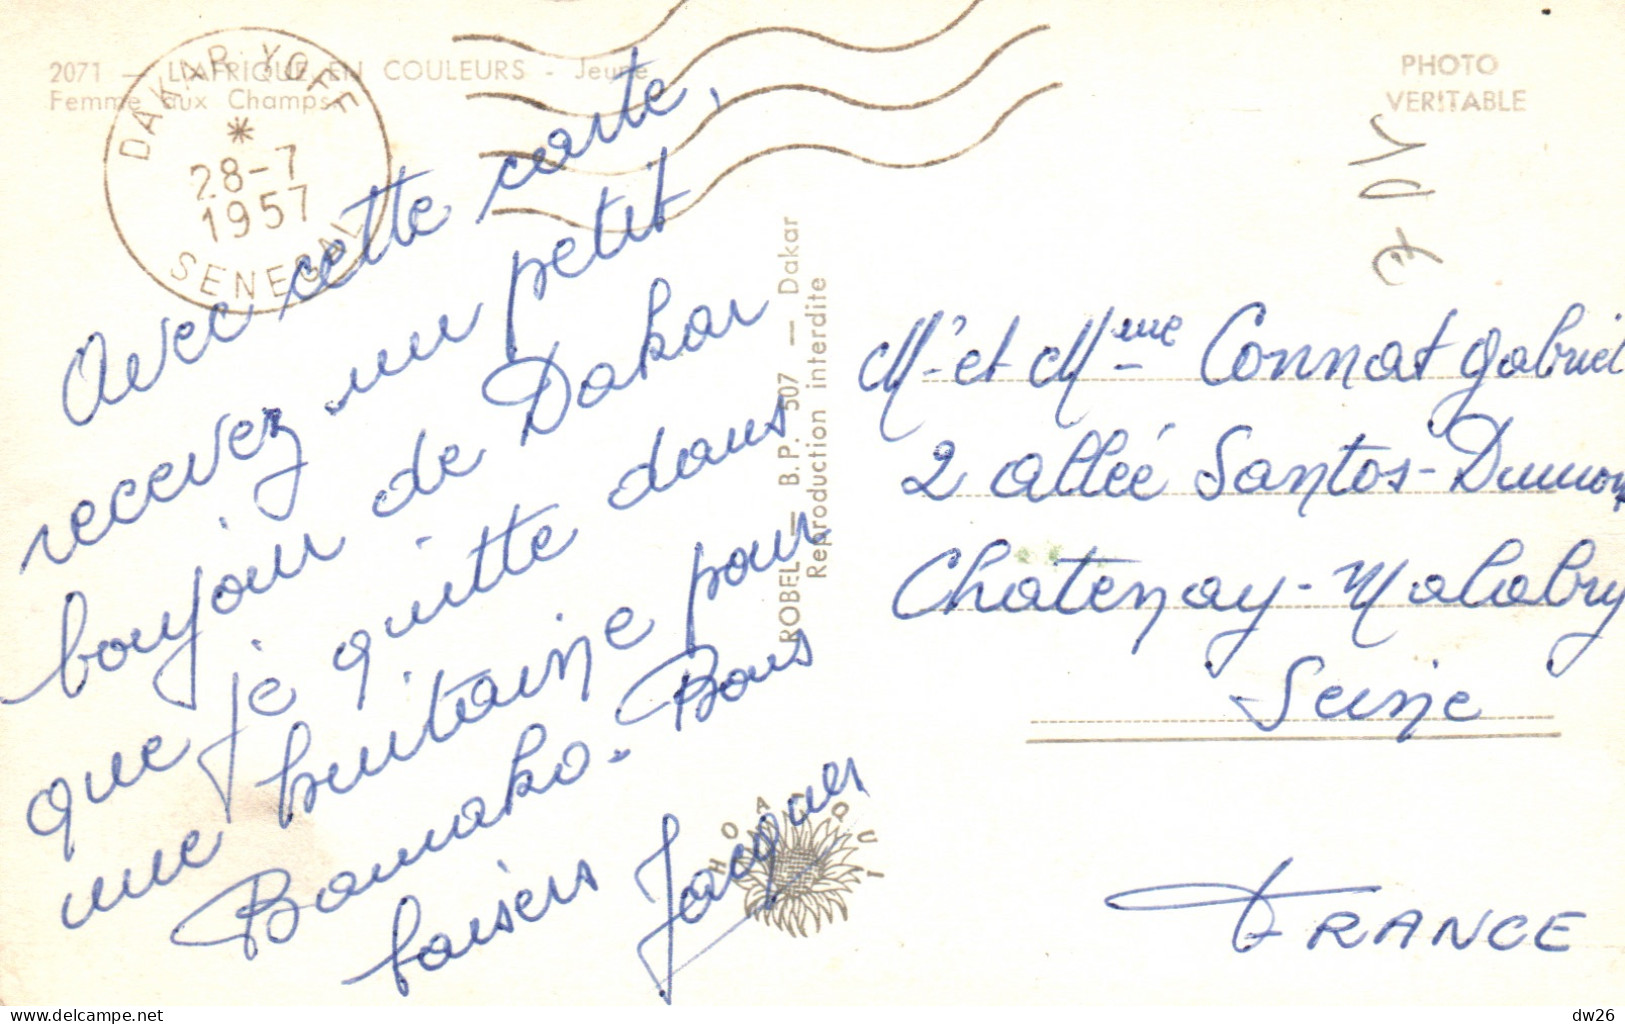 2071 - L'AFRIQUE EN COULEURS - Jeune
Femme aux Champs
DAKAR YOFF
28-7
1957
SENEGAL
PHOTO
VERITABLE
Avec cette carte,
recevez un petit
bonjour de Dakar
que je quitte dans
une huitaine pour
Bamako. Bons
baisers Jacques
ROBEL - B.P. 507 - Dakar
Reproduction interdite
HOA-QUI
Mr et Mme Connat Gabriel
2 allée Santos-Dumont
Chatenay-Malabry
Seine
FRANCE
www.delcampe.net
dw26